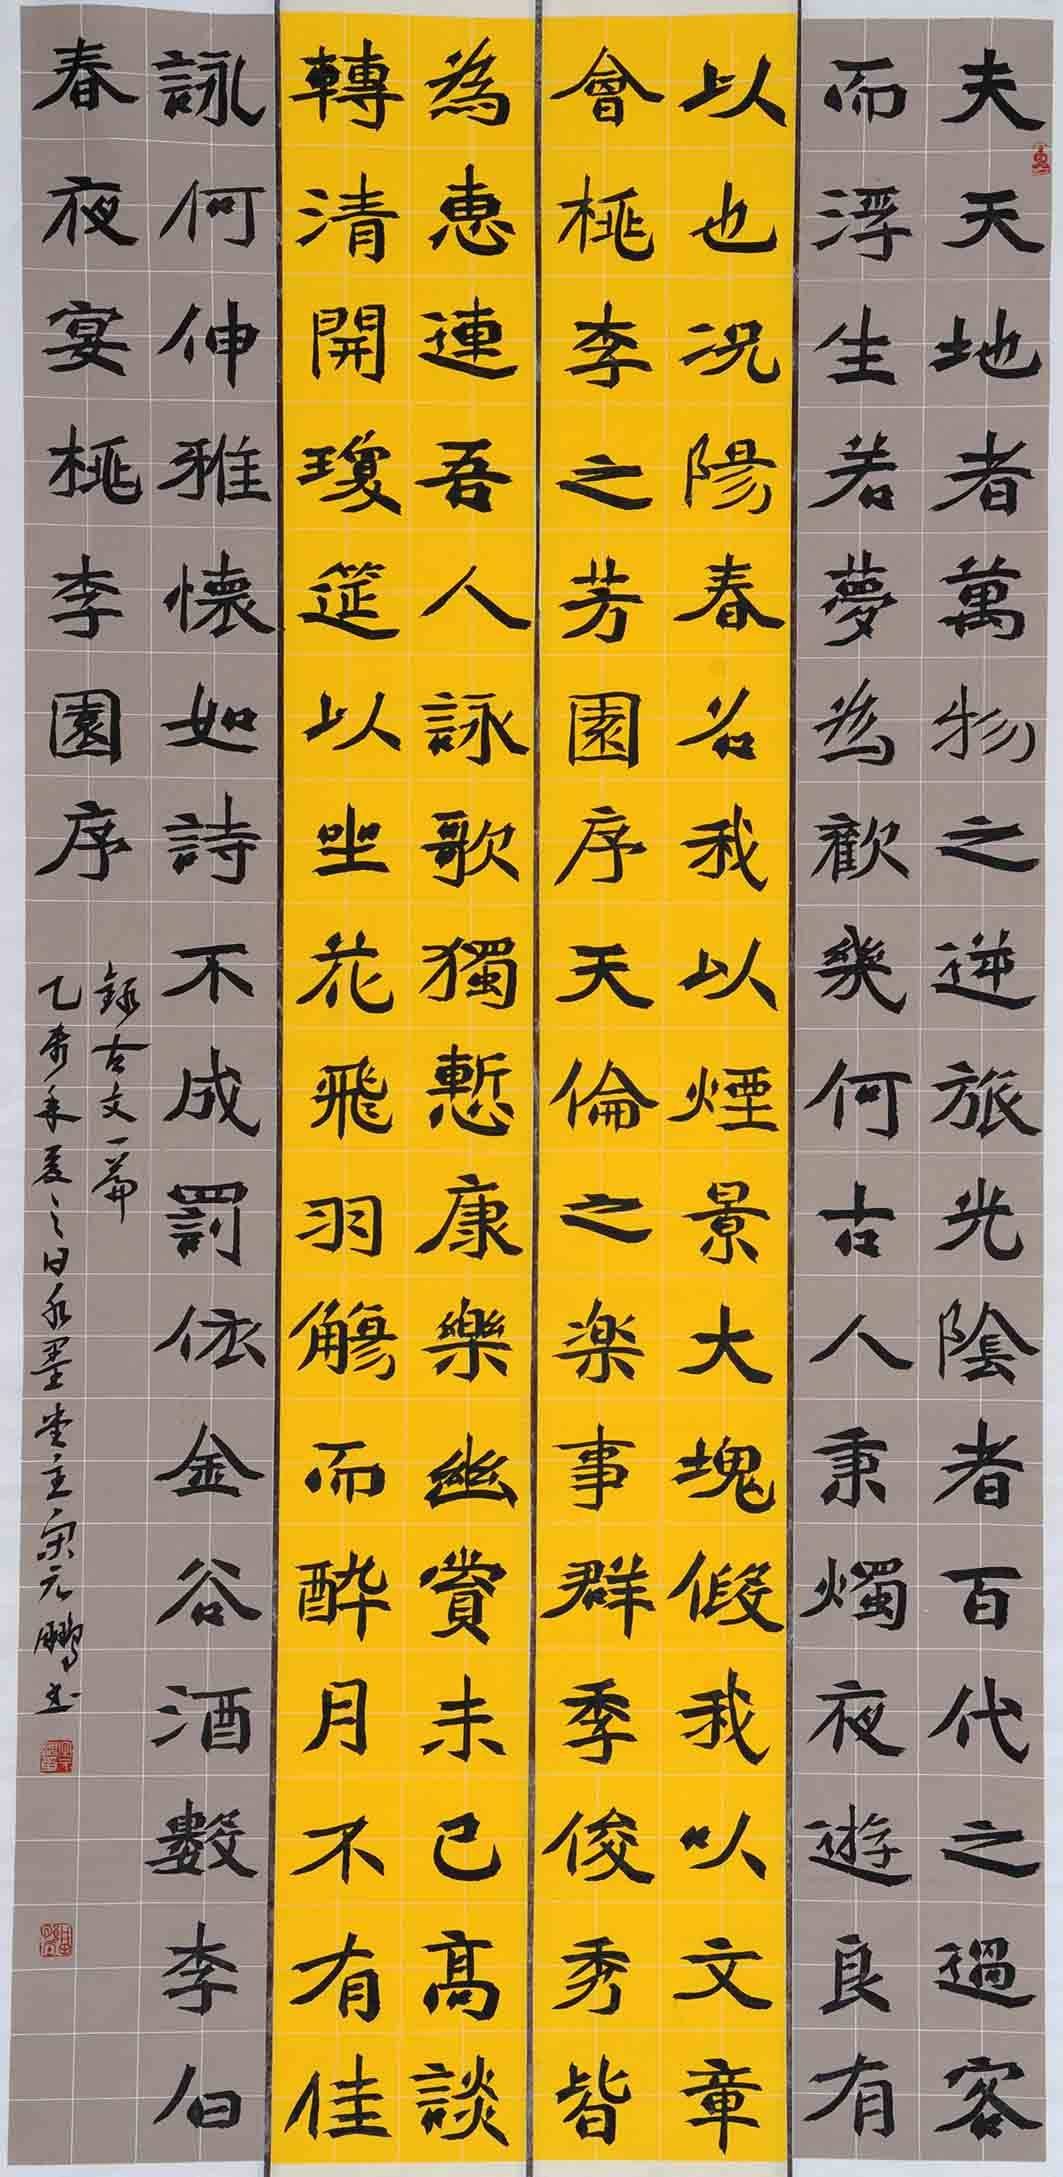 夫天地者萬物之逆旅光陰者百代之過客
而浮生若夢為歡幾何古人秉燭夜遊良有
以也況陽春召我以煙景大塊假我以文章
會桃李之芳園序天倫之楽事群季俊秀皆
為惠連吾人詠歌獨慙康樂幽賞未已高談
轉清開瓊筵以坐花飛羽觴而醉月不有佳
詠何伸雅懷如詩不成罰依金谷酒數李白
春夜宴桃李園序
錄古文一篇
乙年夏之日墨堂主宋元鵬书